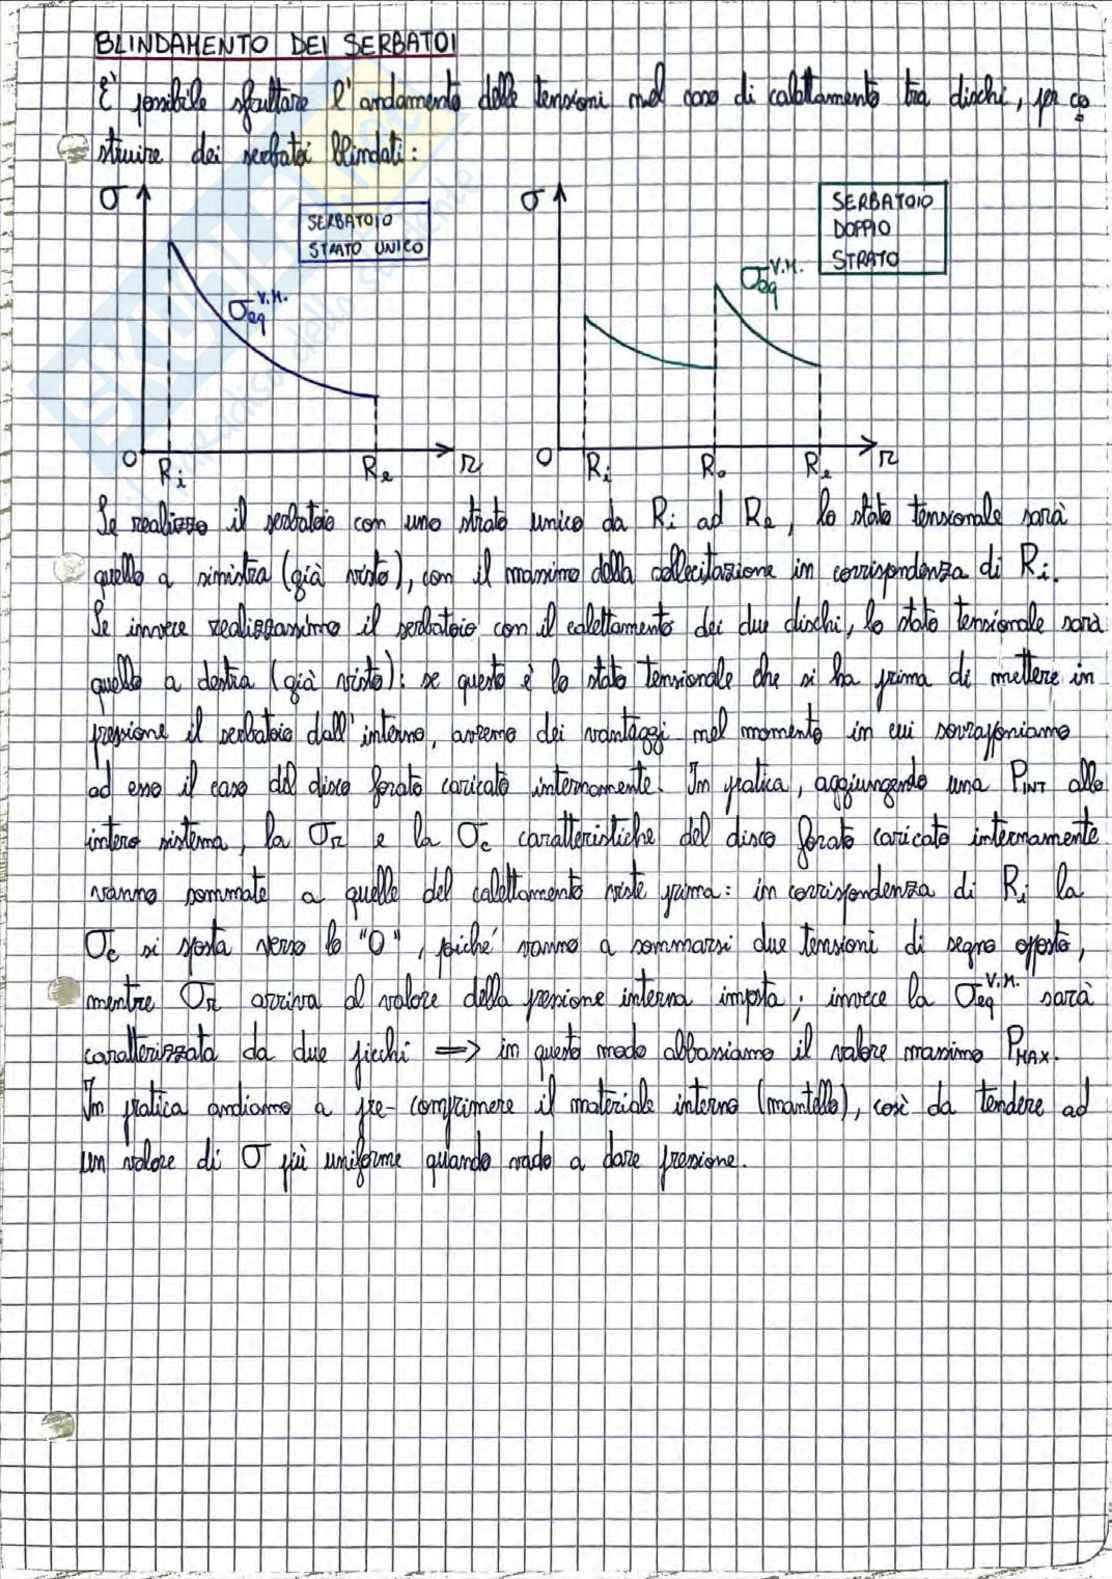 BLINDAMENTO DEI SERBATOI
È possibile sfruttare l'andamento delle tensioni nel caso di calettamento tra dischi, per co
struire dei serbatoi blindati:
σ
SERBATOIO
STRATO UNICO
σeq V.M.
O
Ri
Re
r
σ
SERBATOIO
DOPPIO
STRATO
σeq V.M.
O
Ri
Ro
Re
r
Se realizzo il serbatoio con uno strato unico da Ri ad Re, lo stato tensionale sarà
quello a sinistra (già visto), con il massimo della sollecitazione in corrispondenza di Ri.
Se invece realizzassimo il serbatoio con il calettamento dei due dischi, lo stato tensionale sarà
quello a destra (già visto): se questo è lo stato tensionale che si ha prima di mettere in
pressione il serbatoio dall'interno, avremo dei vantaggi nel momento in cui sovrapponiamo
ad esso il caso del disco forato caricato internamente. In pratica, aggiungendo una PINT allo
intero sistema, la σr e la σc caratteristiche del disco forato caricato internamente
vanno sommate a quelle del calettamento viste prima: in corrispondenza di Ri la
σc si sposta verso lo "O", poiché vanno a sommarsi due tensioni di segno opposto,
mentre σr arriva al valore della pressione interna imposta; invece la σeq V.M. sarà
caratterizzata da due picchi => in questo modo abbassiamo il valore massimo PMAX.
In pratica andiamo a pre-comprimere il materiale interno (mantello), così da tendere ad
un valore di σ più uniforme quando vado a dare pressione.